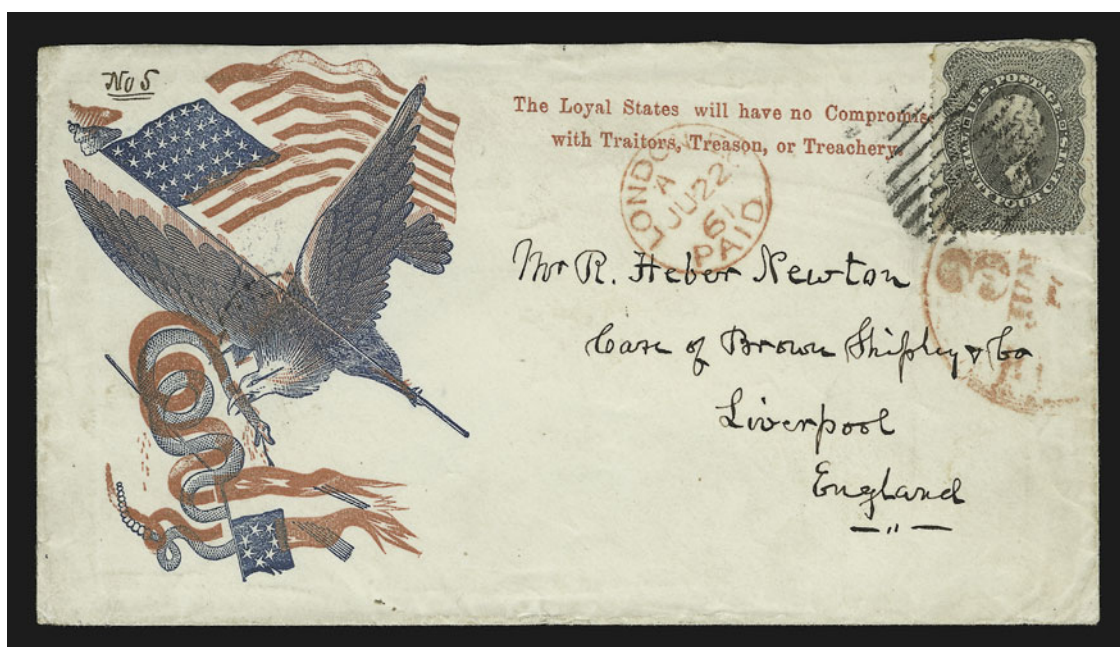 No 5
The Loyal States will have no Compromise
with Traitors, Treason, or Treachery.
U.S. POSTAGE
LONDON
A
JU 22
61
PAID
3
Mr R. Heber Newton
Care of Brown Shipley & Co
Liverpool
England